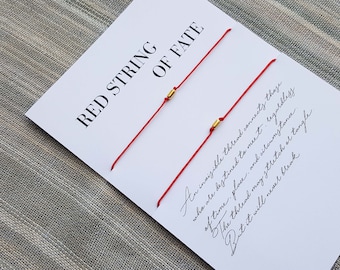 RED STRING
OF FATE
An invisible thread connects those
who are destined to meet, regardless
of time, place, and circumstance.
The thread may stretch or tangle
But it will never break